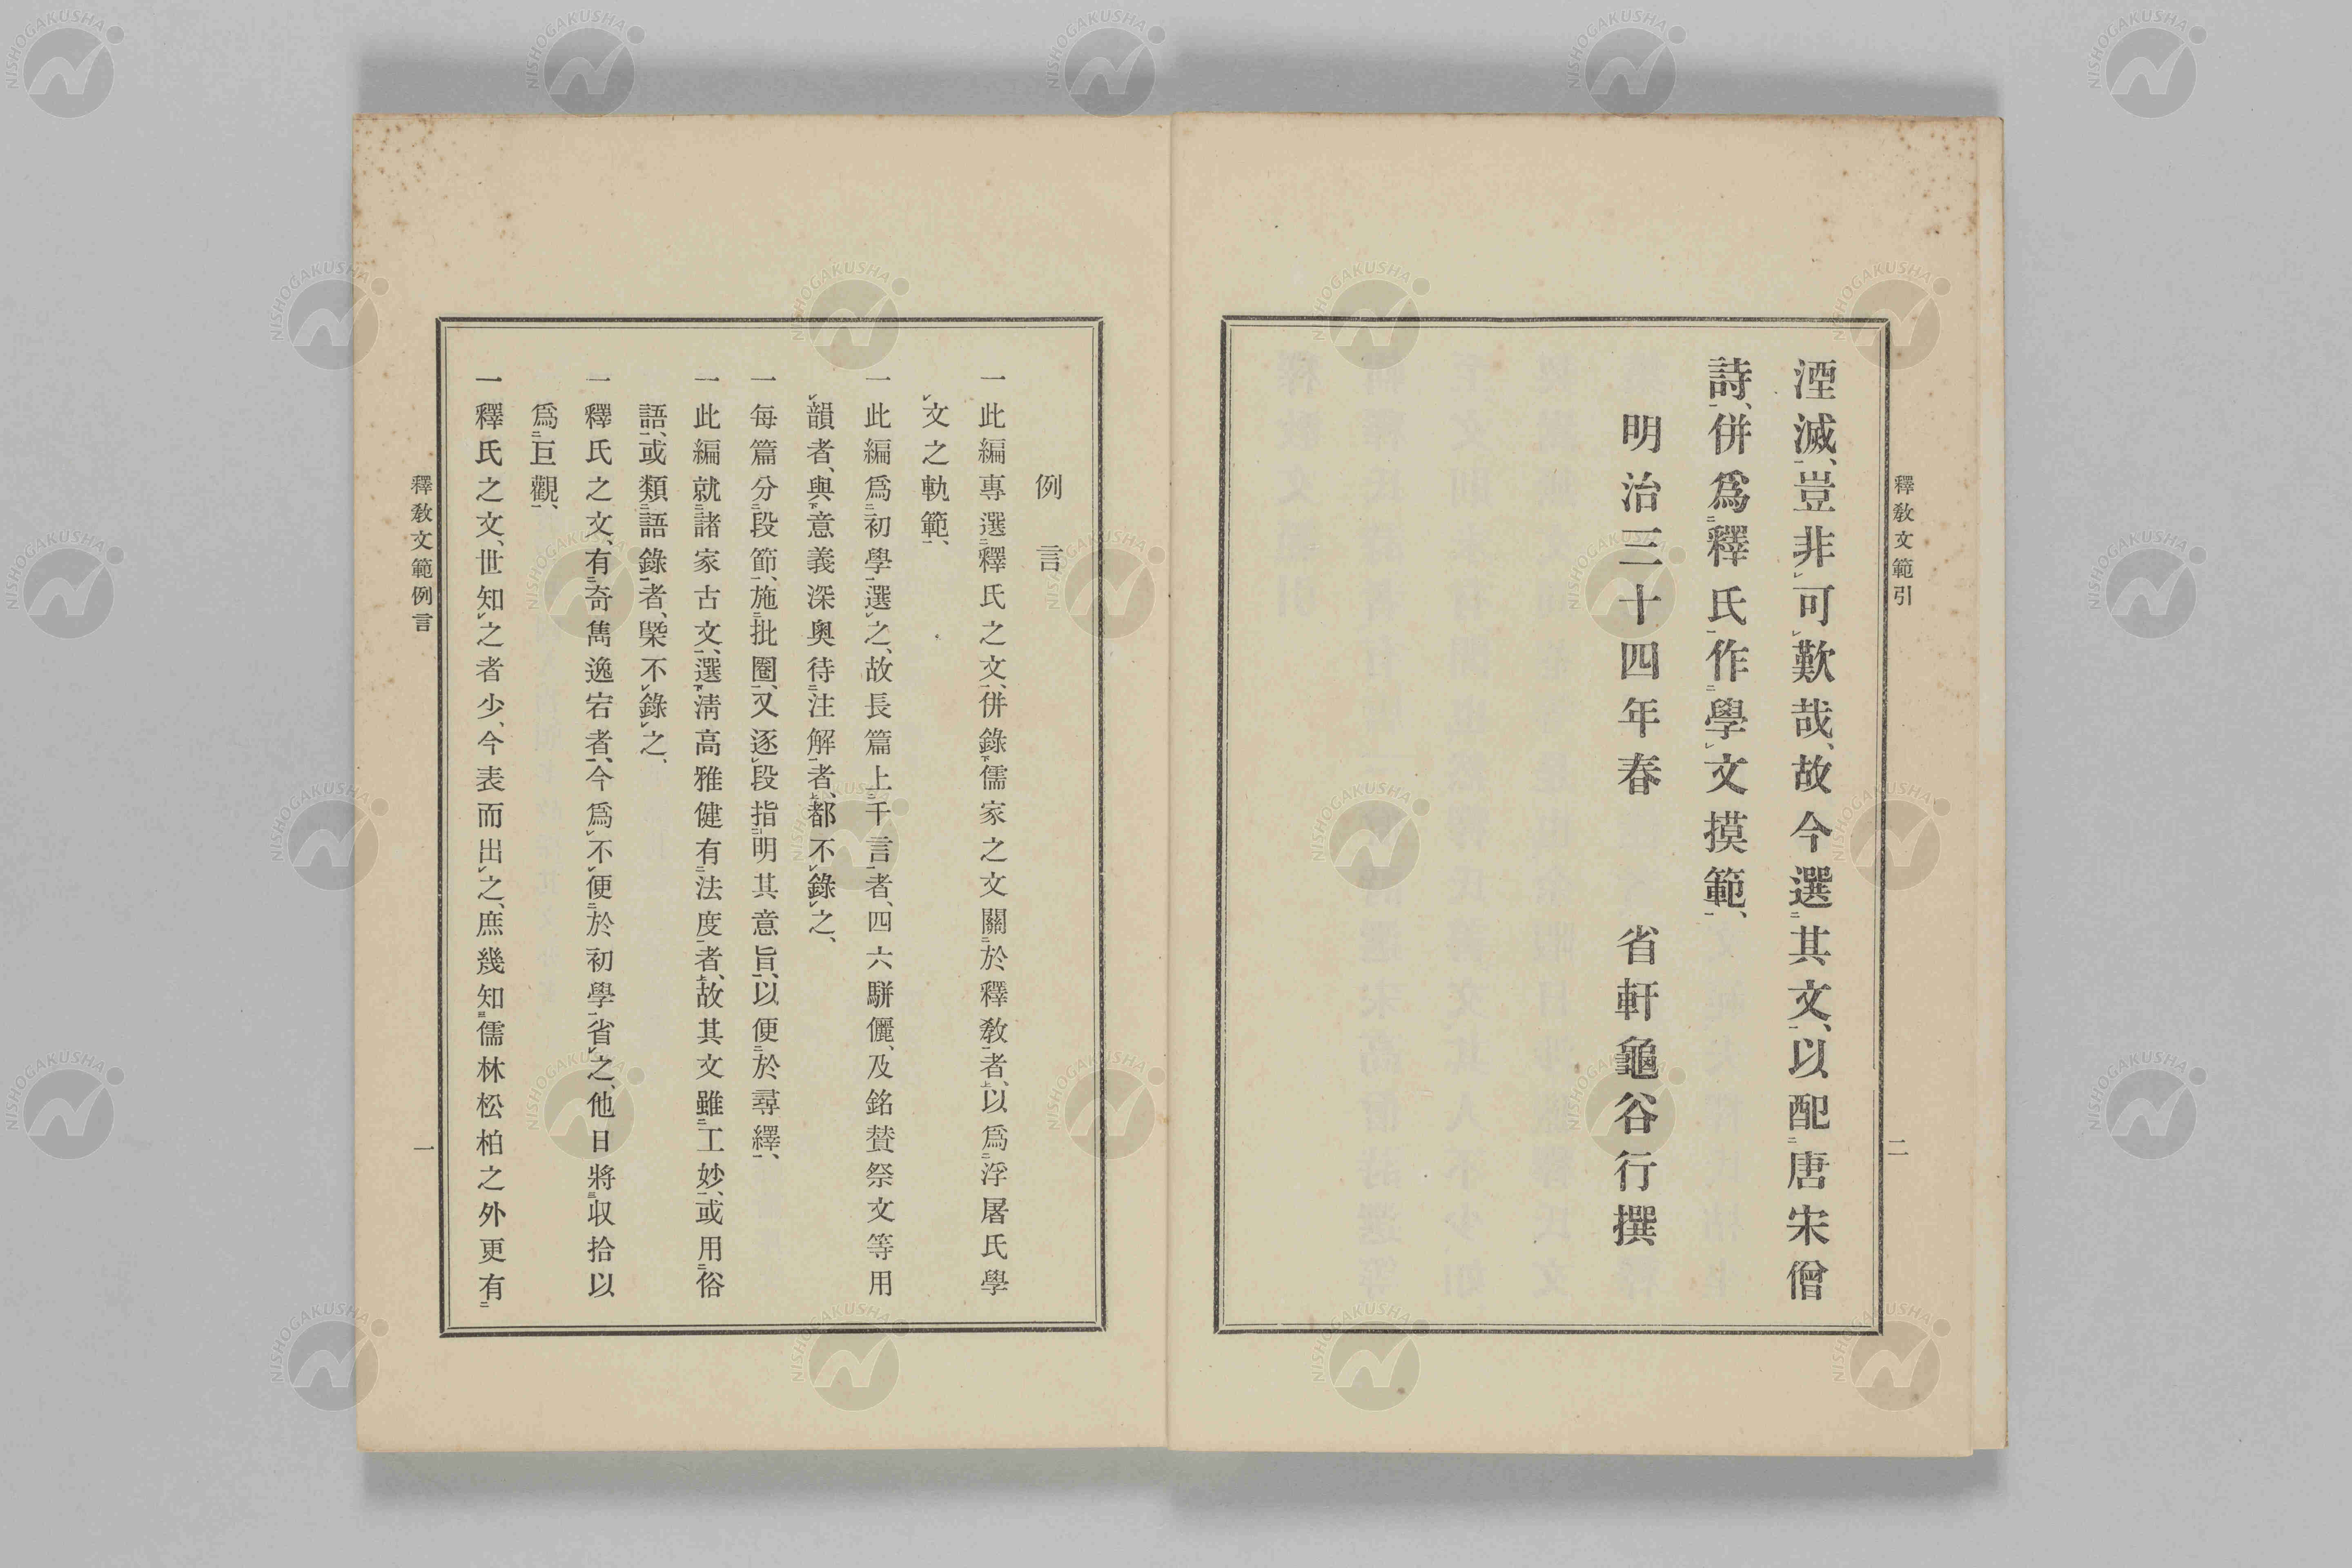 釋敎文範引
二
湮滅、豈非可歎哉、故今選其文、以配唐宋僧
詩、併爲釋氏作學文摸範、
明治三十四年春　省軒龜谷行撰
例言
一此編專選釋氏之文、併錄儒家之文關於釋敎者、以爲浮屠氏學
文之軌範、
一此編爲初學選之、故長篇上千言者、四六騈儷、及銘贊祭文等用
韻者、與意義深奧待注解者、都不錄之、
一每篇分段節、施批圈、又逐段指明其意旨、以便於尋繹、
一此編就諸家古文、選淸高雅健有法度者、故其文雖工妙、或用俗
語、或類語錄者、槩不錄之、
一釋氏之文、有奇雋逸宕者、今爲不便於初學省之、他日將収拾以
爲巨觀、
一釋氏之文、世知之者少、今表而出之、庶幾知儒林松柏之外更有
釋敎文範例言
一
NISHOGAKUSHA